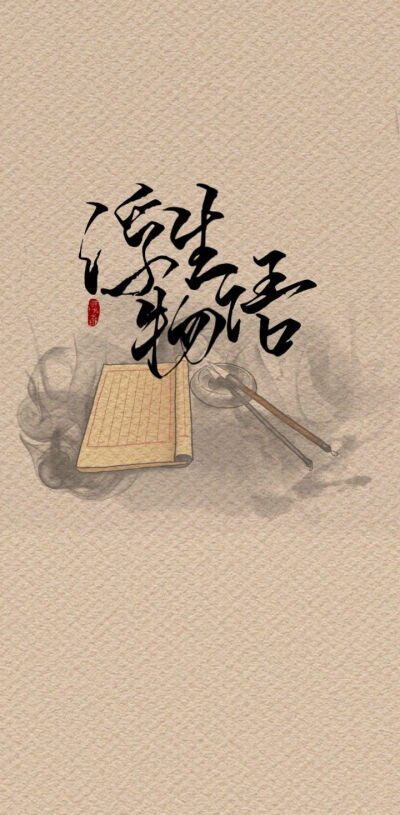 浮生
物语